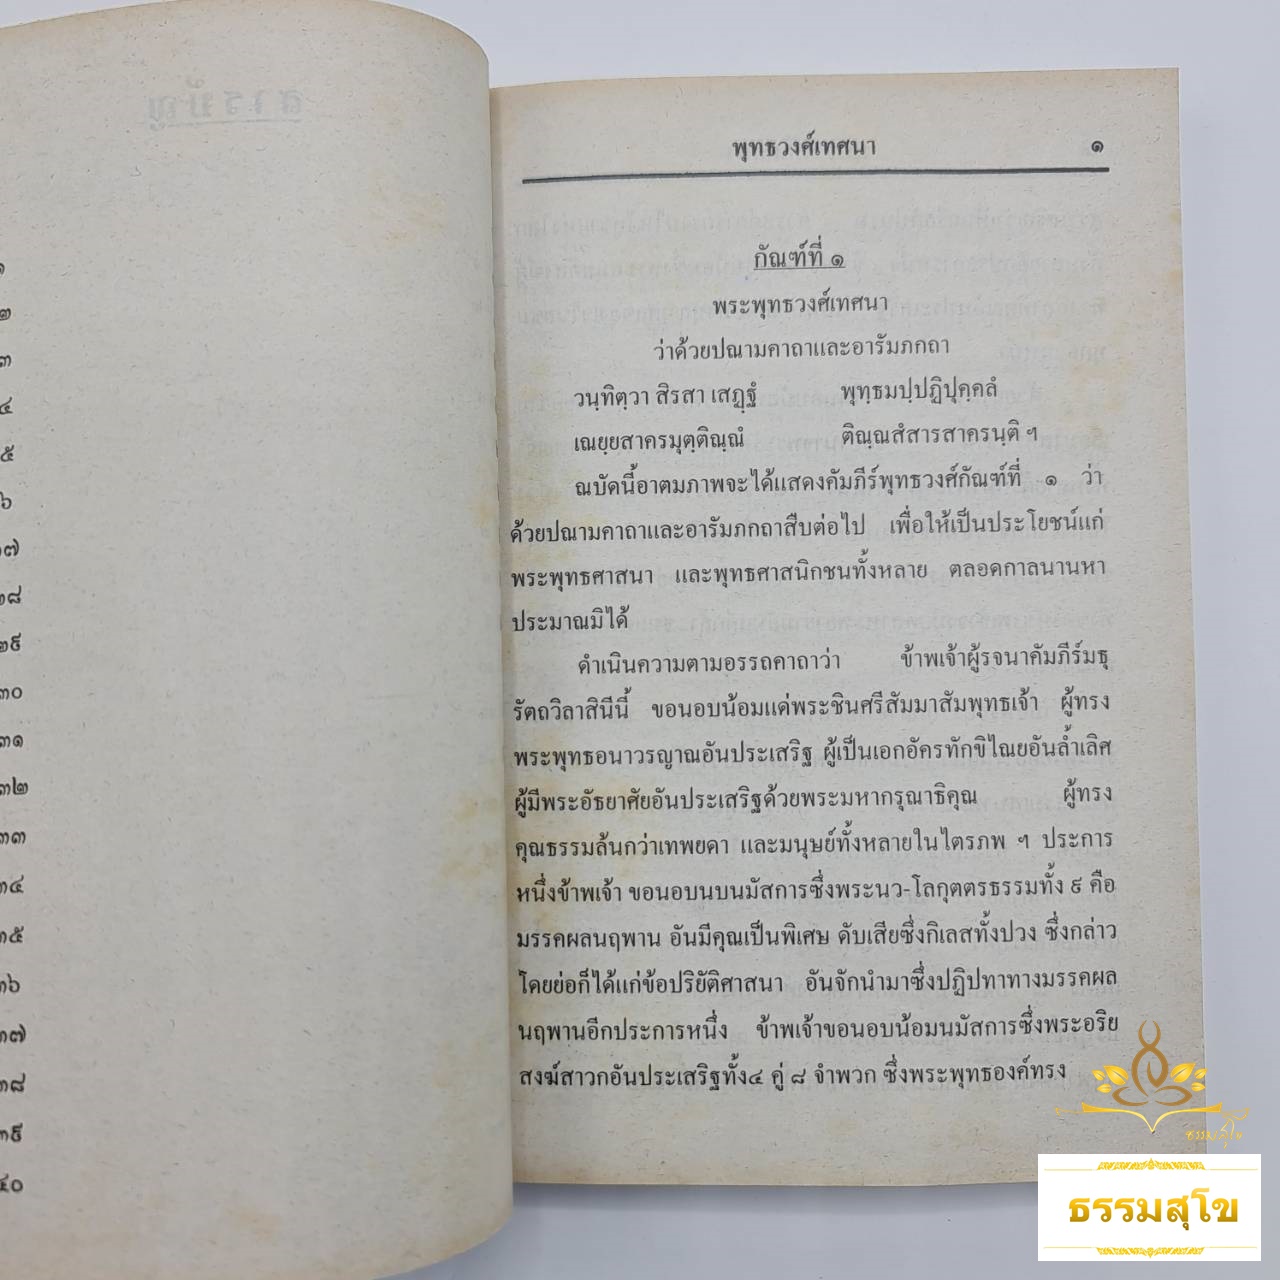 สารบัญ
๑
๒
๓
๔
๕
๖
๗
๒๘
๒๙
๓๐
๓๑
๓๒
๓๓
๓๔
๓๕
๓๖
๓๗
๓๘
๓๙
๔๐
พุทธวงศ์เทศนา ๑
กัณฑ์ที่ ๑
พระพุทธวงศ์เทศนา
ว่าด้วยปณามคาถาและอารัมภกถา
วนฺทิตฺวา สิรสา เสฏฺฐํ พุทฺธมปฺปฏิปุคฺคลํ
เณยฺยสาครมุตฺติณฺณํ ติณฺณสํสารสาครนฺติ ฯ
ณบัดนี้อาตมภาพจะได้แสดงคัมภีร์พุทธวงศ์กัณฑ์ที่ ๑ ว่า
ด้วยปณามคาถาและอารัมภกถาสืบต่อไป เพื่อให้เป็นประโยชน์แก่
พระพุทธศาสนา และพุทธศาสนิกชนทั้งหลาย ตลอดกาลนานหา
ประมาณมิได้
ดำเนินความตามอรรถคาถาว่า ข้าพเจ้าผู้รจนาคัมภีร์มธุ
รัตถวิลาสินีนี้ ขอนอบน้อมแด่พระชินศรีสัมมาสัมพุทธเจ้า ผู้ทรง
พระพุทธอนาวรญาณอันประเสริฐ ผู้เป็นเอกอัครทักขิไณยอันล้ำเลิศ
ผู้มีพระอัธยาศัยอันประเสริฐด้วยพระมหากรุณาธิคุณ ผู้ทรง
คุณธรรมล้นกว่าเทพยดา และมนุษย์ทั้งหลายในไตรภพ ฯ ประการ
หนึ่งข้าพเจ้า ขอนอบนบนมัสการซึ่งพระนว-โลกุตตรธรรมทั้ง ๙ คือ
มรรคผลนฤพาน อันมีคุณเป็นพิเศษ ดับเสียซึ่งกิเลสทั้งปวง ซึ่งกล่าว
โดยย่อก็ได้แก่ข้อปริยัติศาสนา อันจักนำมาซึ่งปฏิปทาทางมรรคผล
นฤพานอีกประการหนึ่ง ข้าพเจ้าขอนอบน้อมนมัสการซึ่งพระอริย
สงฆ์สาวกอันประเสริฐทั้ง๔ คู่ ๘ จำพวก ซึ่งพระพุทธองค์ทรง
ธรรมสุโข
ธรรมสุโข